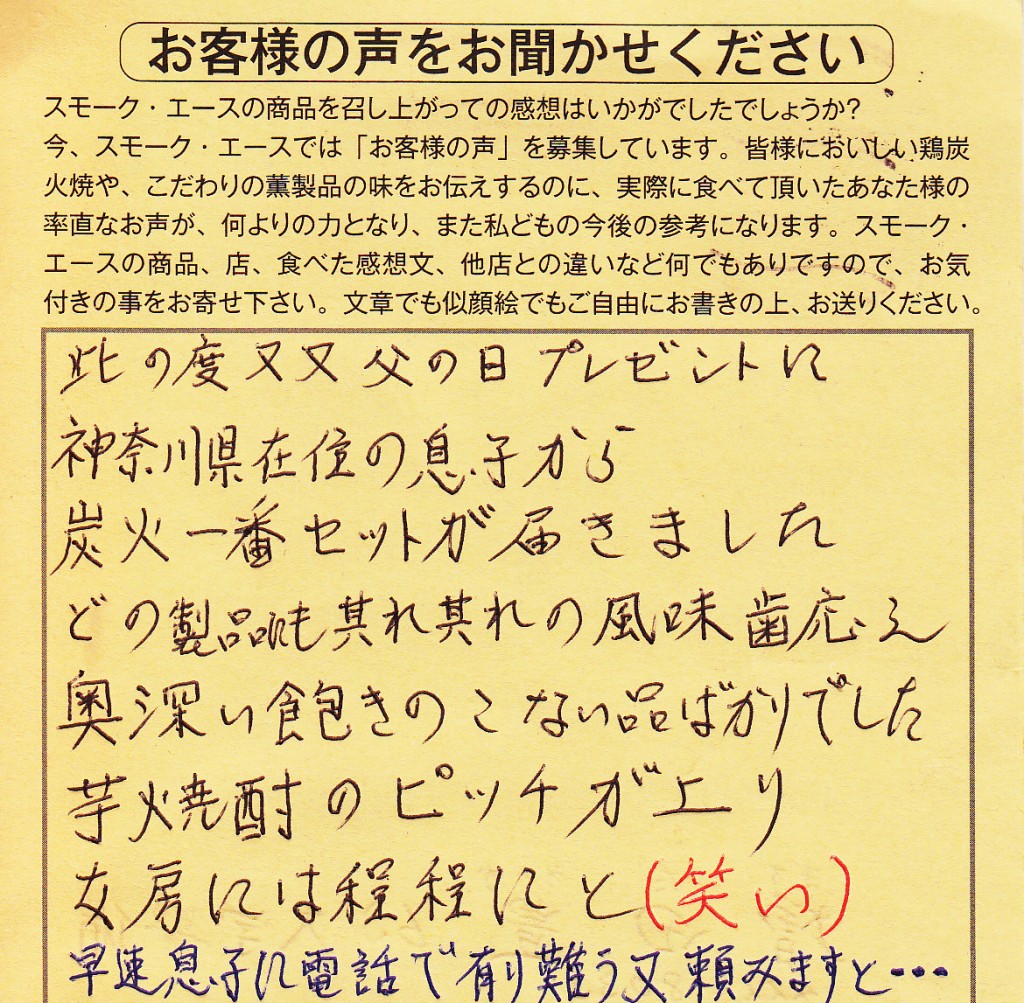 お客様の声をお聞かせください
スモーク・エースの商品を召し上がっての感想はいかがでしたでしょうか?
今、スモーク・エースでは「お客様の声」を募集しています。皆様においしい鶏炭
火焼や、こだわりの薫製品の味をお伝えするのに、実際に食べて頂いたあなた様の
率直なお声が、何よりの力となり、また私どもの今後の参考になります。スモーク・
エースの商品、店、食べた感想文、他店との違いなど何でもありですので、お気
付きの事をお寄せ下さい。文章でも似顔絵でもご自由にお書きの上、お送りください。
此の度又又父の日プレゼントに
神奈川県在位の息子から
炭火一番セットが届きました
どの製品にも其れ其れの風味歯応え
奥深い飽きのこない品ばかりでした
芋焼酎のピッチが上り
女房には程程にと(笑い)
早速息子に電話で有り難う又頼みますと・・・